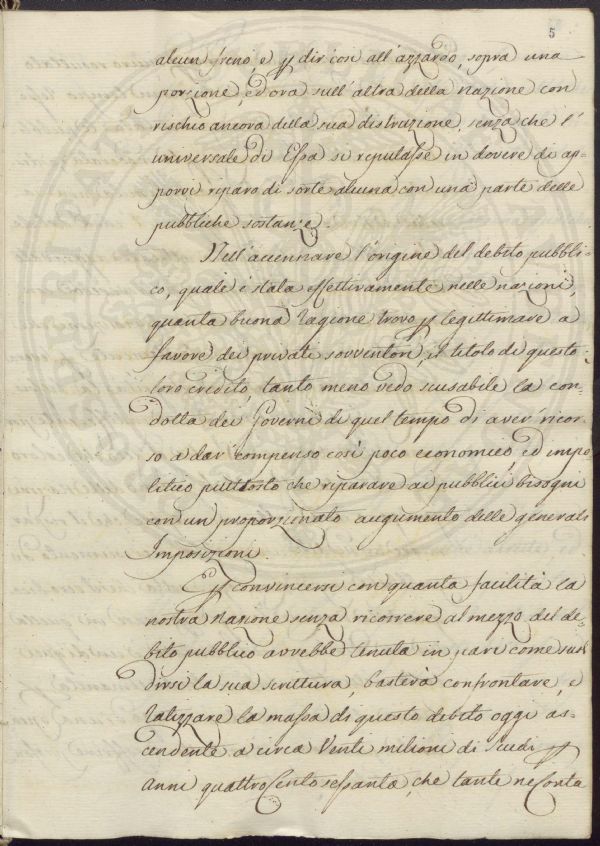 5
alcun freno, e p dir così all'azzardo, sopra una
porzione, ed ora sull'altra della nazione con
rischio ancora della sua distruzione, senza che l'
universale di Essa si reputasse in dovere di ap=
porvi riparo di sorte alcuna con una parte delle
pubbliche sostanze.
Nell'accennare l'origine del debito pubbli=
co, quale è stata effettivamente nelle nazioni,
quanta buona ragione trovo p legittimare a
favore dei privati sovventori, il titolo di questo
loro credito, tanto meno vedo scusabile la con=
dotta dei Governi di quel tempo di aver' ricor=
so a dar' compenso così poco economico, ed impo
litico piuttosto che riparare ai pubblici bisogni
con un proporzionato augumento delle generali
Imposizioni.
P convincersi con quanta facilità la
nostra nazione senza ricorrere al mezzo del de=
bito pubblico avrebbe tenuta in pari come suol
dirsi la sua scrittura, basterà confrontare, e
ratizzare la massa di questo debito oggi as=
cendente a circa Venti milioni di Scudi p
anni quattrocento sessanta, che tante ne conta